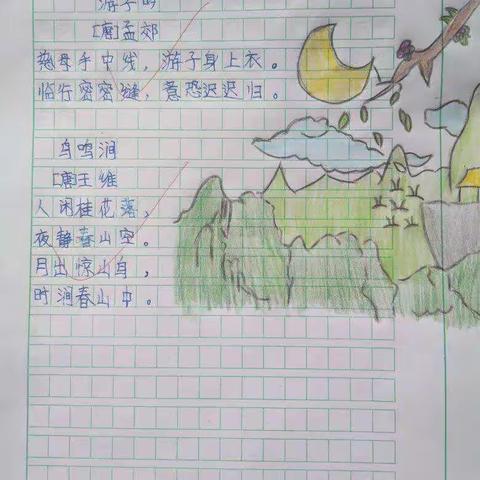 游子吟
[唐]孟郊
慈母手中线，游子身上衣。
临行密密缝，意恐迟迟归。
鸟鸣涧
[唐]王维
人闲桂花落，
夜静春山空。
月出惊山鸟，
时涧春山中。